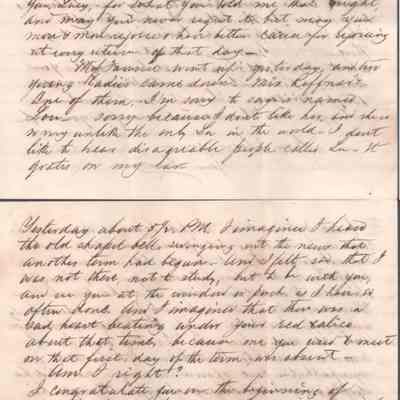 You Lucy, for what you told me that night,
and may you never regret it but may you
more & more rejoice & have better cause for rejoicing
at every return of that day—
Mr. Fannie went up yesterday, and two
young Ladies came down. Miss
One of them, I'm sorry to say is named
Lou— sorry because I don't like her, and she is
so very unlike the only Lu in the world. I don't
like to hear disagreeable people called Lu. It
grates on my ear
Yesterday about 5½ P.M. I imagined I heard
the old chapel bell swinging out the news that
another term had begun. And I felt sad that I
was not there, not to study, but to be with you,
and see you at the window or porch as I have so
often done. And I imagined that there was a
sad heart beating under your red calico
about that time, because one you used to meet
on that first day of the term was absent—
Am I right!?
I congratulate you on the beginning of